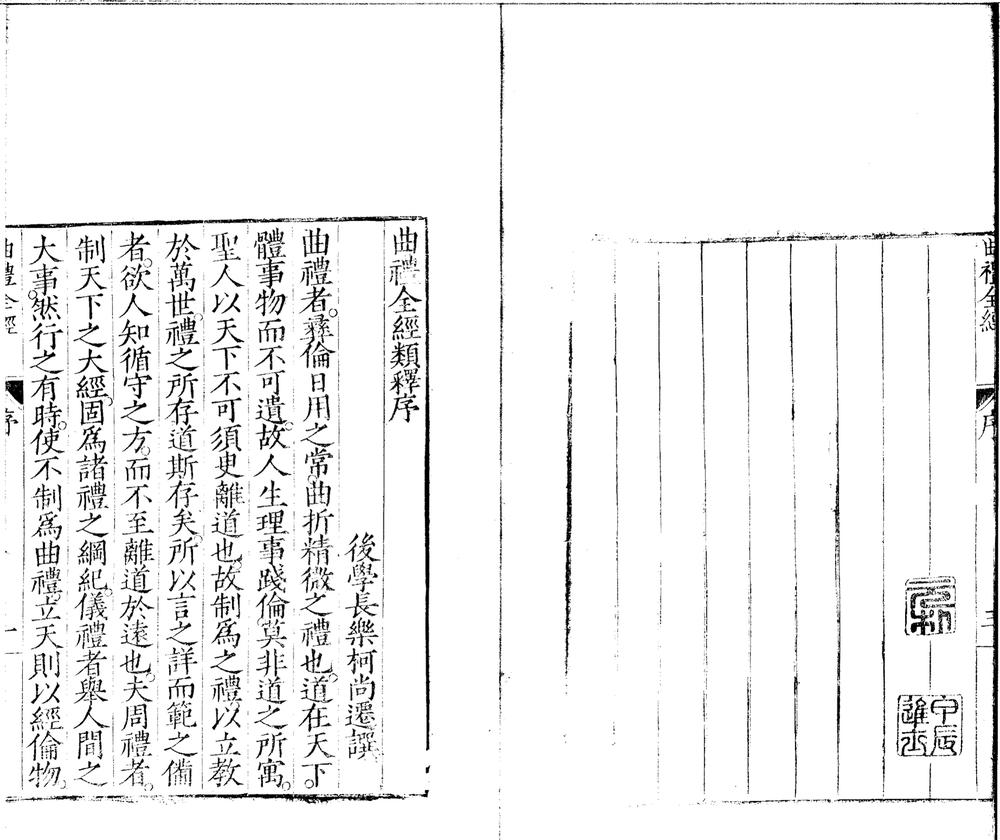 曲禮全經
序
三
甲辰
進士
曲禮全經類釋序
後學長樂柯尚遷譔
曲禮者。彞倫日用之常。曲折精微之禮也。道在天下。
體事物而不可遺。故人生理事踐倫。莫非道之所寓。
聖人以天下不可須臾離道也。故制爲之禮。以立教
於萬世。禮之所存道斯存矣。所以言之詳而範之備
者。欲人知循守之方。而不至離道於遠也。夫周禮者。
制天下之大經。固爲諸禮之綱紀。儀禮者舉人間之
大事。然行之有時。使不制爲曲禮。立天則以經倫物。
曲禮全經
序
一